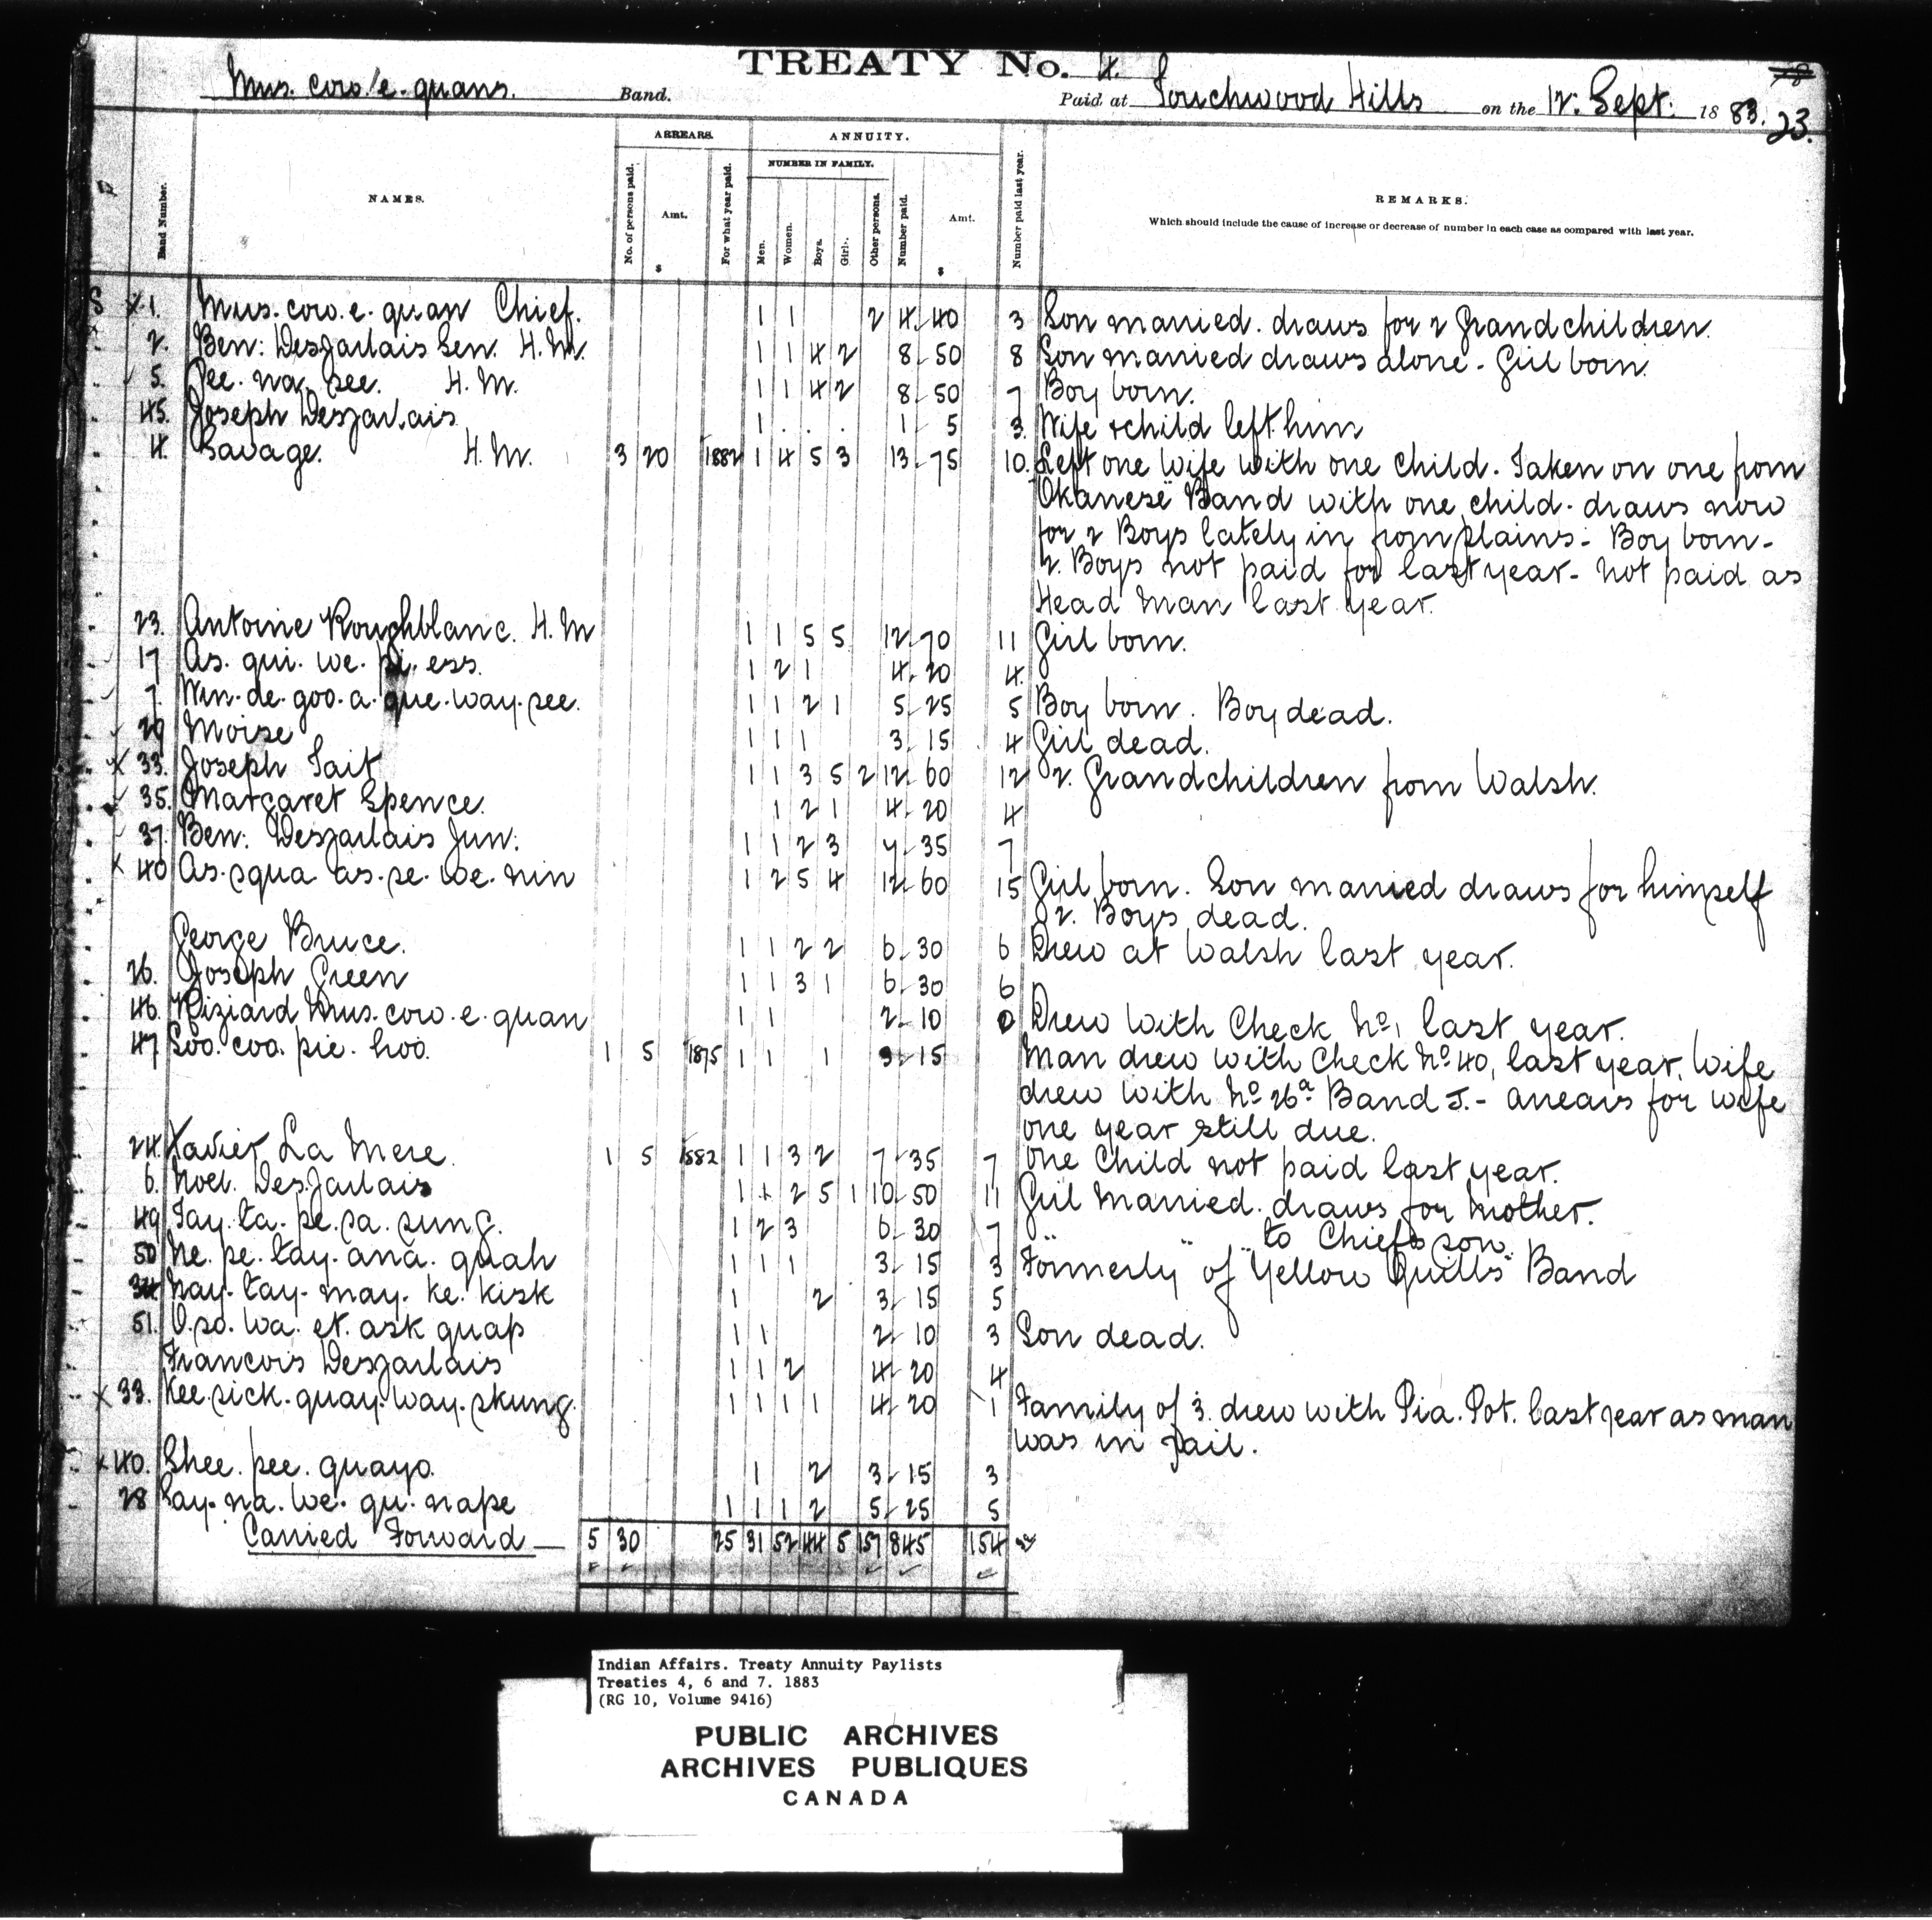 TREATY No. 4.
Mus. cow. e. quans. Band. Paid at Touchwood Hills on the 12: Sept: 1883. 23.
Band Number. NAMES. ARREARS. No. of persons paid. Amt. $ For what year paid. ANNUITY. NUMBER IN FAMILY. Men. Women. Boys. Girls. Other persons. Number paid. Amt. $ Number paid last year. REMARKS.
Which should include the cause of increase or decrease of number in each case as compared with last year.
S x 1. Mus. cow. e. quan Chief. 1 1 2 4 40 3 Son married. draws for 2 Grandchildren.
2. Ben: Desjarlais Sen. H. M. 1 1 4 2 8 50 8 Son married draws alone - Girl born.
5. Pee. na. see. H. M. 1 1 4 2 8 50 7 Boy born.
45. Joseph Desjarlais 1 . . . 1 5 3. Wife & child left him
4. Savage. H. M. 3 20 1882 1 4 5 3 13 75 10. Left one wife with one child. Taken on one from
Okanese Band with one child. draws now
for 2 Boys lately in from plains - Boy born -
2. Boys not paid for last year - not paid as
Head Man last year.
23. Antoine Roughblanc. H. M 1 1 5 5 12 70 11 Girl born.
17 As. qui. we. pi. ess. 1 2 1 4 20 4.
7. Win. de. goo. a. que. way. see. 1 1 2 1 5 25 5 Boy born. Boy dead.
29 Moise 1 1 1 3 15 4 Girl dead.
x 33. Joseph Tait 1 1 3 5 2 12 60 12 2. Grandchildren from Walsh.
35. Margaret Spence. 1 2 1 4 20 4
37. Ben: Desjarlais Jun: 1 1 2 3 7 35 7
x 40 As. squa as. se. we. nin 1 2 5 4 12 60 15 Girl born. Son married draws for himself
2. Boys dead.
George Bruce. 1 1 2 2 6 30 6 Drew at Walsh last year.
26. Joseph Green 1 1 3 1 6 30 6
46. Kiziard Mus. cow. e. quan 1 1 2 10 0 Drew with Check No 1 last year.
47. Soo. coo. pie. hoo. 1 5 1875 1 1 1 3 15 Man drew with Check No 40, last year. Wife
drew with No 26a Band J. - arrears for wife
one year still due.
24. Xavier La Mere. 1 5 1882 1 1 3 2 7 35 7 One Child not paid last year.
6. Noel. Desjarlais 1 1 2 5 1 10 50 11 Girl Married. draws for Mother.
49. Tay. ta. pe. sa. sung. 1 2 3 6 30 7 " " " to Chiefs son.
50 Ne. pe. tay. ana. quah 1 1 1 3 15 3 Formerly of Yellow Quills Band
34 Nay. tay. may. ke. kisk 1 2 3 15 5
51. O. so. wa. et. ask quap 1 1 2 10 3 Son dead.
Francois Desjarlais 1 1 2 4 20 4
x 33. Kee. sick. quay. way. skung. 1 1 1 1 4 20 1 Family of 3. drew with Pia. Pot. last year as man
was in jail.
x 40. Shee. pee. quayo. 1 2 3 15 3
28 Say. na. we. qu. nape 1 1 1 2 5 25 5
Carried Forward — 5 30 25 31 52 44 5 157 845 154
Indian Affairs. Treaty Annuity Paylists
Treaties 4, 6 and 7. 1883
(RG 10, Volume 9416)
PUBLIC ARCHIVES
ARCHIVES PUBLIQUES
CANADA